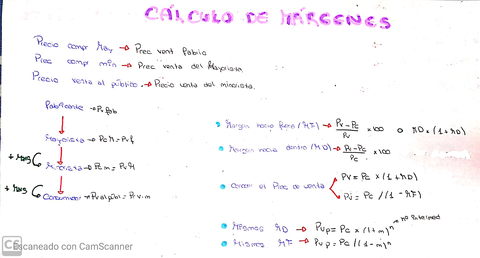 CÁLCULO DE MÁRGENES
Precio compr May → Prec vent fabric
Prec compr min → Prec venta del Mayorista
Precio venta al público → Precio venta del minorista.
Fabricante → Pv fab
Mayorista → PcM = Pvf
+ Mg
Minorista → Pcm = PvM
+ Mg
Consumidor → Pvalpúbl = Pv.m
Margen hacia fuera (MF) → Pv - Pc / Pv × 100 o MD × (1 + MD)
Margen hacia dentro (MD) → Pv - Pc / Pc × 100
Conocer el Prec de venta
PV = Pc × (1 + MD)
PV = Pc / (1 - MF)
Mismos MD → Pvp = Pc × (1 + m)ⁿ
Mismos MF → Pvp = Pc / (1 - m)ⁿ
CS Escaneado con CamScanner